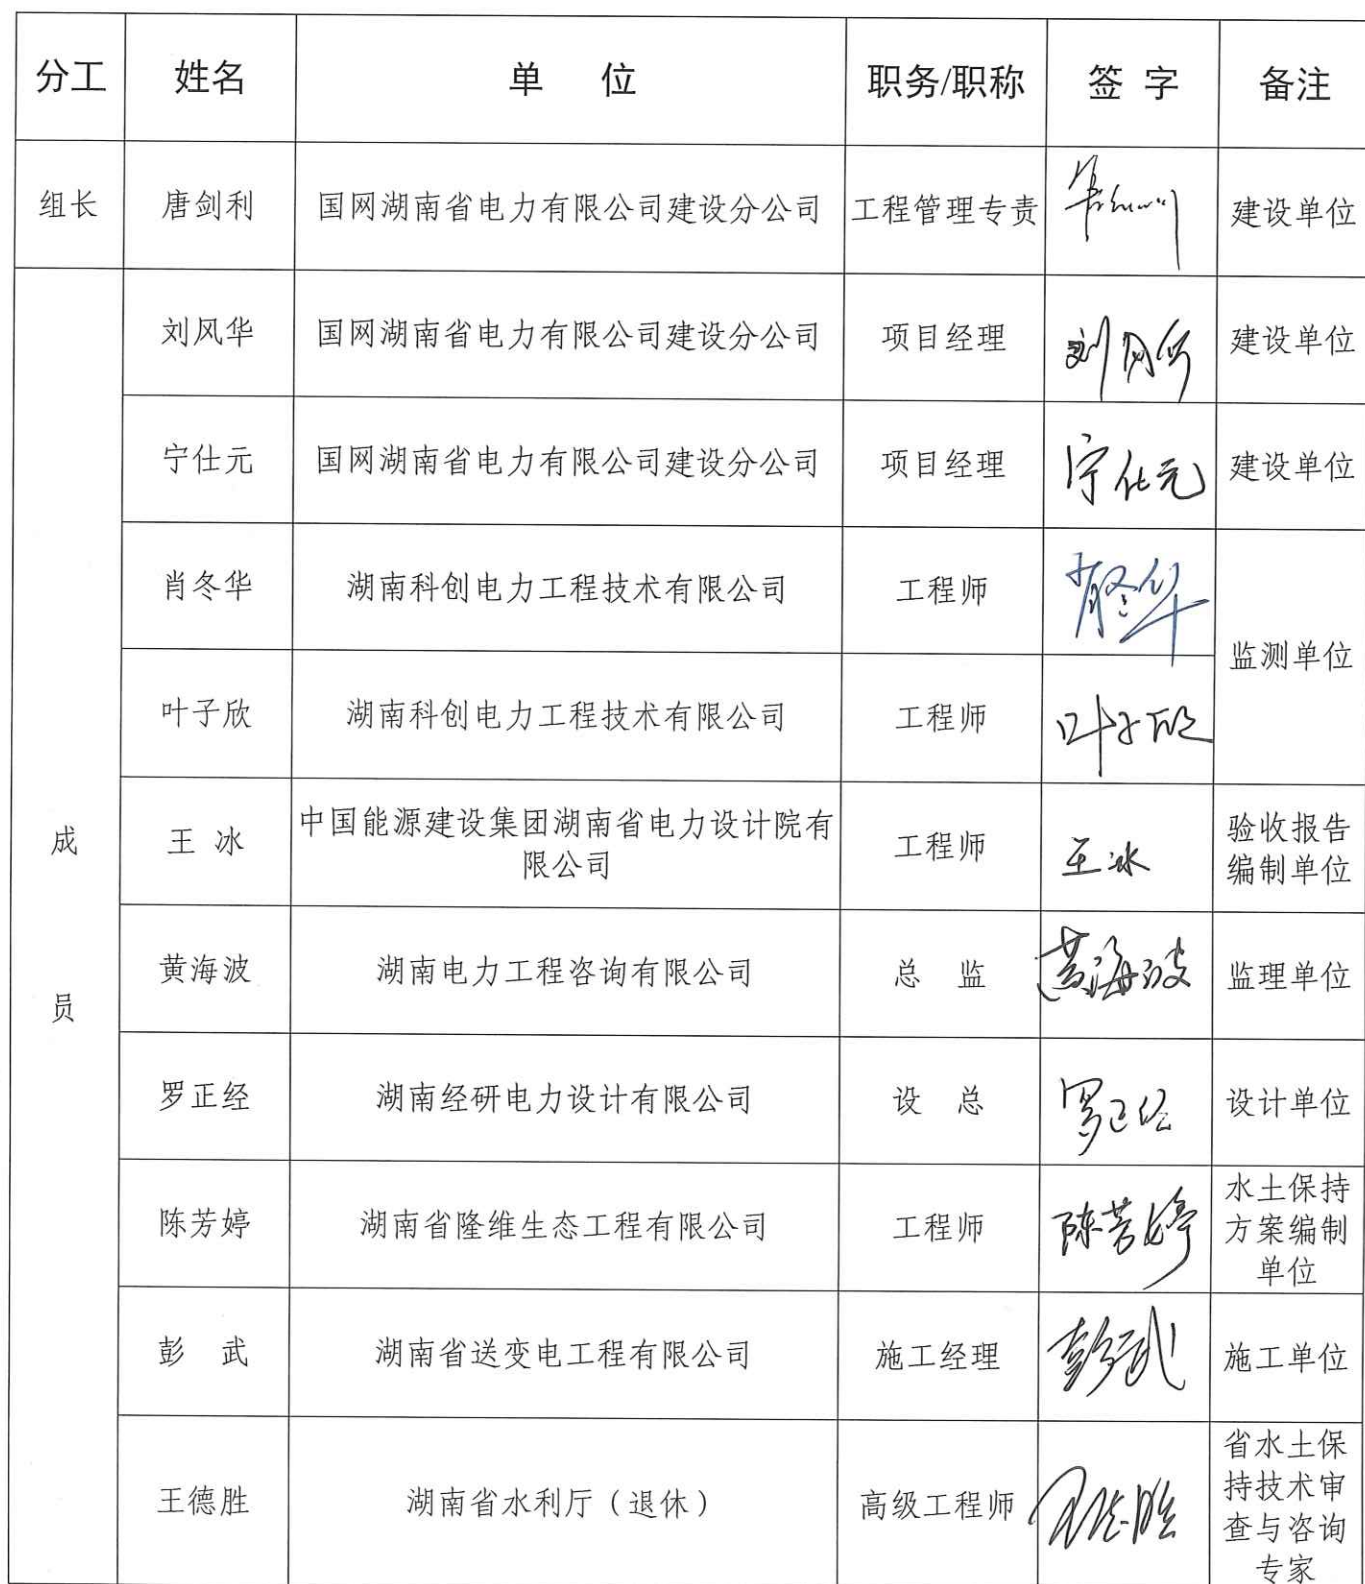 分工 姓名 单 位 职务/职称 签 字 备注
组长 唐剑利 国网湖南省电力有限公司建设分公司 工程管理专责 建设单位
刘风华 国网湖南省电力有限公司建设分公司 项目经理 刘风华 建设单位
宁仕元 国网湖南省电力有限公司建设分公司 项目经理 宁仕元 建设单位
肖冬华 湖南科创电力工程技术有限公司 工程师 肖冬华
监测单位
叶子欣 湖南科创电力工程技术有限公司 工程师 叶子欣
成
员
王 冰 中国能源建设集团湖南省电力设计院有
限公司 工程师 王冰 验收报告
编制单位
黄海波 湖南电力工程咨询有限公司 总 监 黄海波 监理单位
罗正经 湖南经研电力设计有限公司 设 总 罗正经 设计单位
陈芳婷 湖南省隆维生态工程有限公司 工程师 陈芳婷 水土保持
方案编制
单位
彭 武 湖南省送变电工程有限公司 施工经理 彭武 施工单位
王德胜 湖南省水利厅（退休） 高级工程师 王德胜 省水土保
持技术审
查与咨询
专家